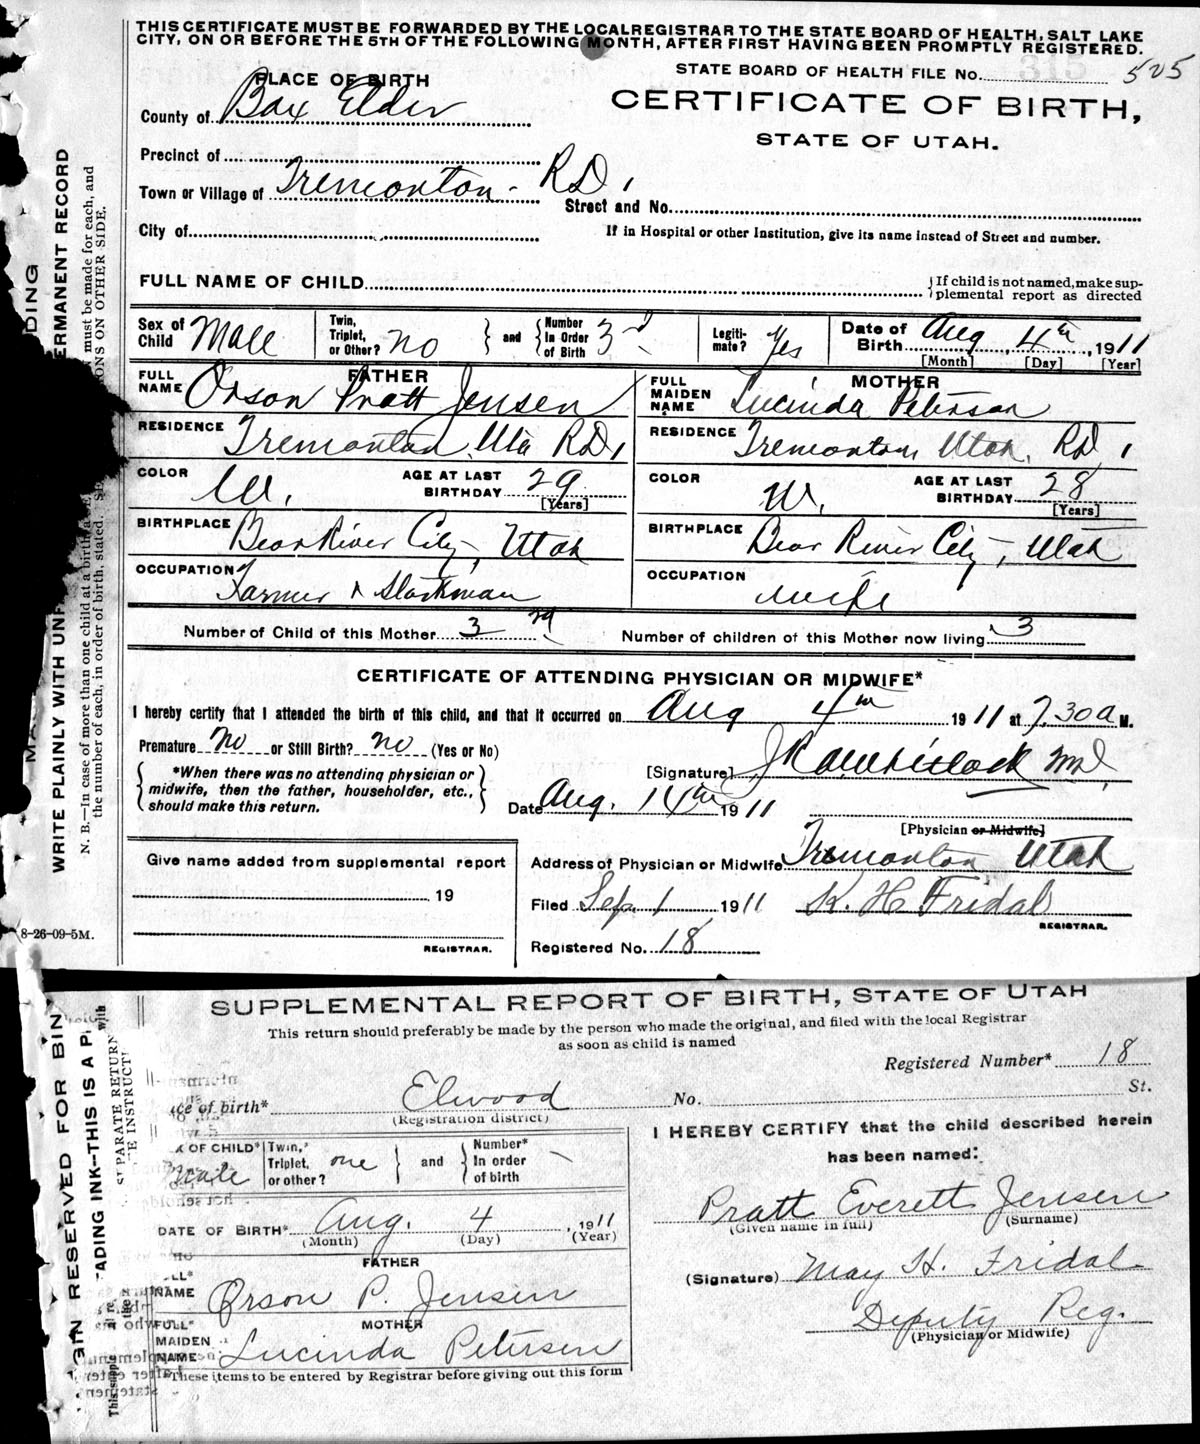 THIS CERTIFICATE MUST BE FORWARDED BY THE LOCAL REGISTRAR TO THE STATE BOARD OF HEALTH, SALT LAKE
CITY, ON OR BEFORE THE 5TH OF THE FOLLOWING MONTH, AFTER FIRST HAVING BEEN PROMPTLY REGISTERED.
PLACE OF BIRTH
STATE BOARD OF HEALTH FILE No. 315 505
County of Box Elder
CERTIFICATE OF BIRTH,
STATE OF UTAH.
Precinct of
Town or Village of Tremonton - RD 1
Street and No.
City of
If in Hospital or other Institution, give its name instead of Street and number.
FULL NAME OF CHILD
If child is not named, make sup-
plemental report as directed
Sex of Child Male
Twin, Triplet, or Other? no
and
Number In Order of Birth 3rd
Legiti-mate? Yes
Date of Birth Aug 4th, 1911
[Month] [Day] [Year]
FATHER
FULL NAME Orson Pratt Jensen
MOTHER
FULL MAIDEN NAME Lucinda Peterson
RESIDENCE Tremonton, Uta RD 1
RESIDENCE Tremonton, Utah. RD 1
COLOR W.
AGE AT LAST BIRTHDAY 29
[Years]
COLOR W.
AGE AT LAST BIRTHDAY 28
[Years]
BIRTHPLACE Bear River City, Utah
BIRTHPLACE Bear River City, Utah
OCCUPATION Farmer & Stockman
OCCUPATION wife
Number of Child of this Mother 3rd
Number of children of this Mother now living 3
CERTIFICATE OF ATTENDING PHYSICIAN OR MIDWIFE*
I hereby certify that I attended the birth of this child, and that it occurred on Aug 4th 1911 at 7.30 a M.
Premature No or Still Birth? no (Yes or No)
*When there was no attending physician or
midwife, then the father, householder, etc.,
should make this return.
[Signature] Whitlock MD,
Date Aug. 14th 1911
[Physician or Midwife]
Give name added from supplemental report
19
REGISTRAR.
Address of Physician or Midwife Tremonton Utah
Filed Sep. 1 1911 K. H. Fridal
REGISTRAR.
Registered No. 18
8-26-09-5M.
WRITE PLAINLY WITH UNF
ERMANENT RECORD
DING
N. B.—In case of more than one child at a birth, a
must be made for each, and
the number of each, in order of birth, stated.
ONS ON OTHER SIDE.
SUPPLEMENTAL REPORT OF BIRTH, STATE OF UTAH
This return should preferably be made by the person who made the original, and filed with the local Registrar
as soon as child is named
Registered Number* 18
ce of birth* Elwood No. St.
(Registration district)
X OF CHILD* Male
Twin,* Triplet, or other? one
and
Number* In order of birth
DATE OF BIRTH* Aug. 4, 1911
(Month) (Day) (Year)
FATHER
NAME Orson P. Jensen
MOTHER
FULL* MAIDEN NAME* Lucinda Petersen
These items to be entered by Registrar before giving out this form
I HEREBY CERTIFY that the child described herein
has been named:
Pratt Everett Jensen
(Given name in full) (Surname)
(Signature) May H. Fridal
Deputy Reg.
(Physician or Midwife)
GIN RESERVED FOR BIN
ADING INK--THIS IS A P